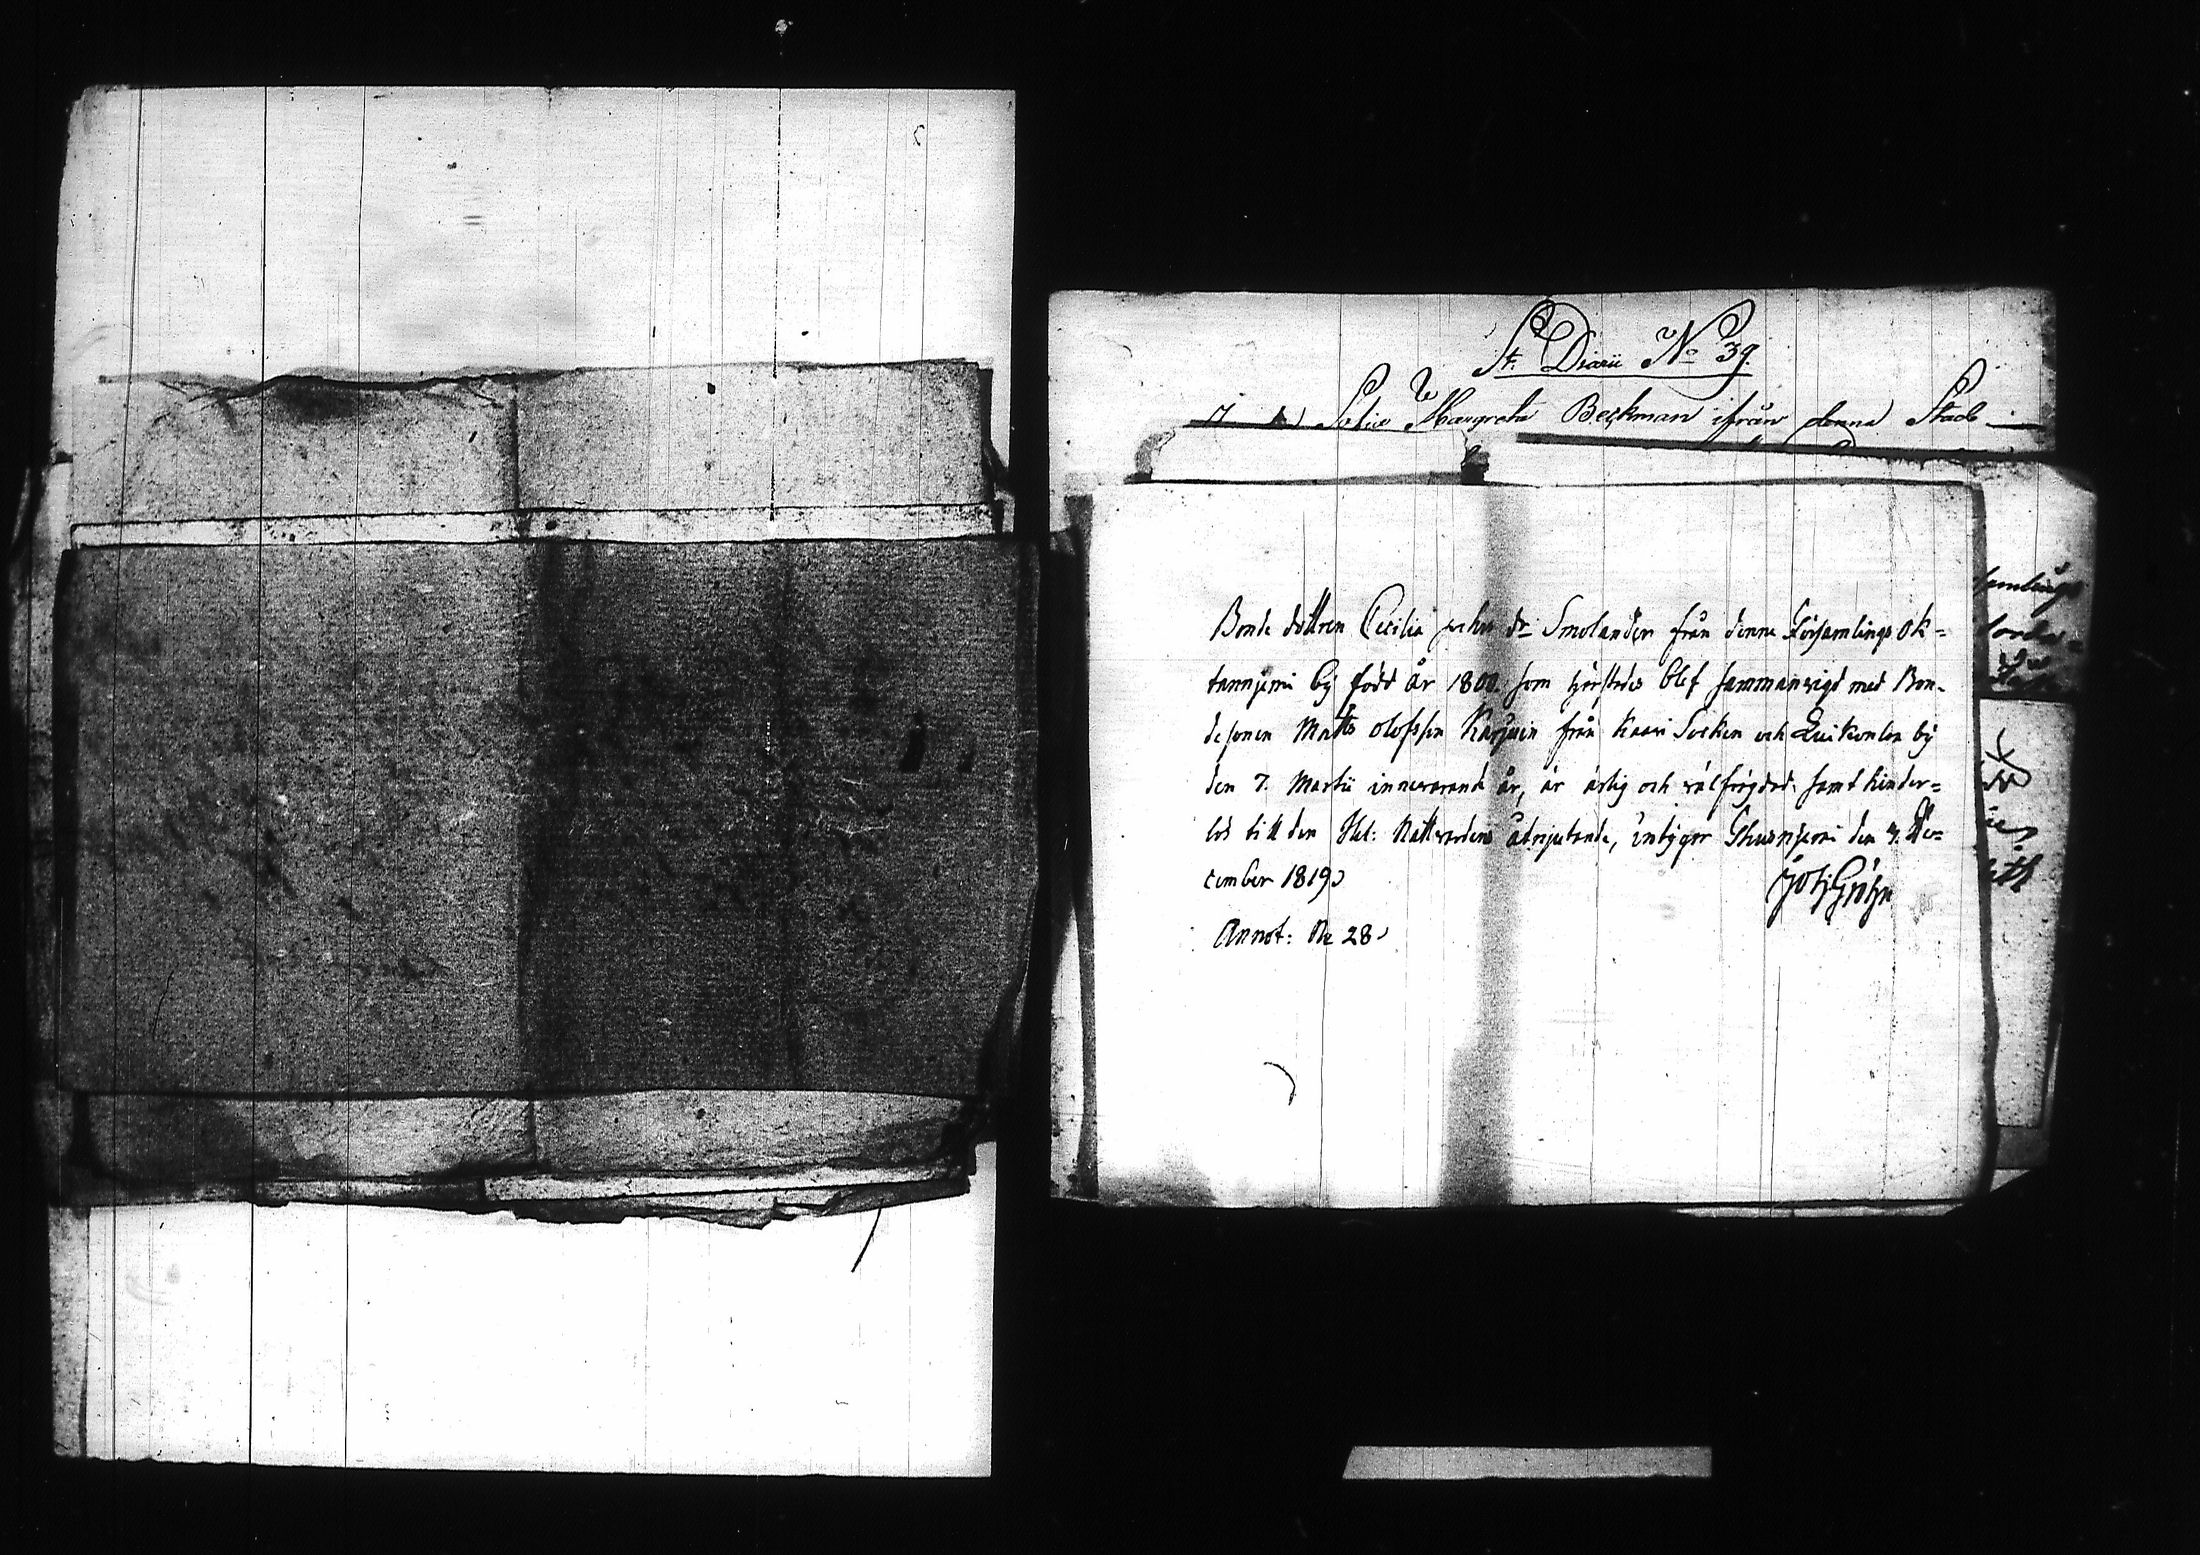 St. Diarii No 39.
Margreta Beckman ifrån denna Stad
Bonde dottren Cecilia Johns dr Smolander från denne Församlings Ok=
tannjemi by född år 1800 som härstedes blef sammanvigd med Bon-
desonen Matts Olofsson Karjain från Kaavi Socken och by
den 7. Martii innevarande år, är ärlig och välfrägdad, samt hinder=
lös till den Hel: Nattvardens åtnjutande, intygar den De-
cember 1819
Annot: No 28